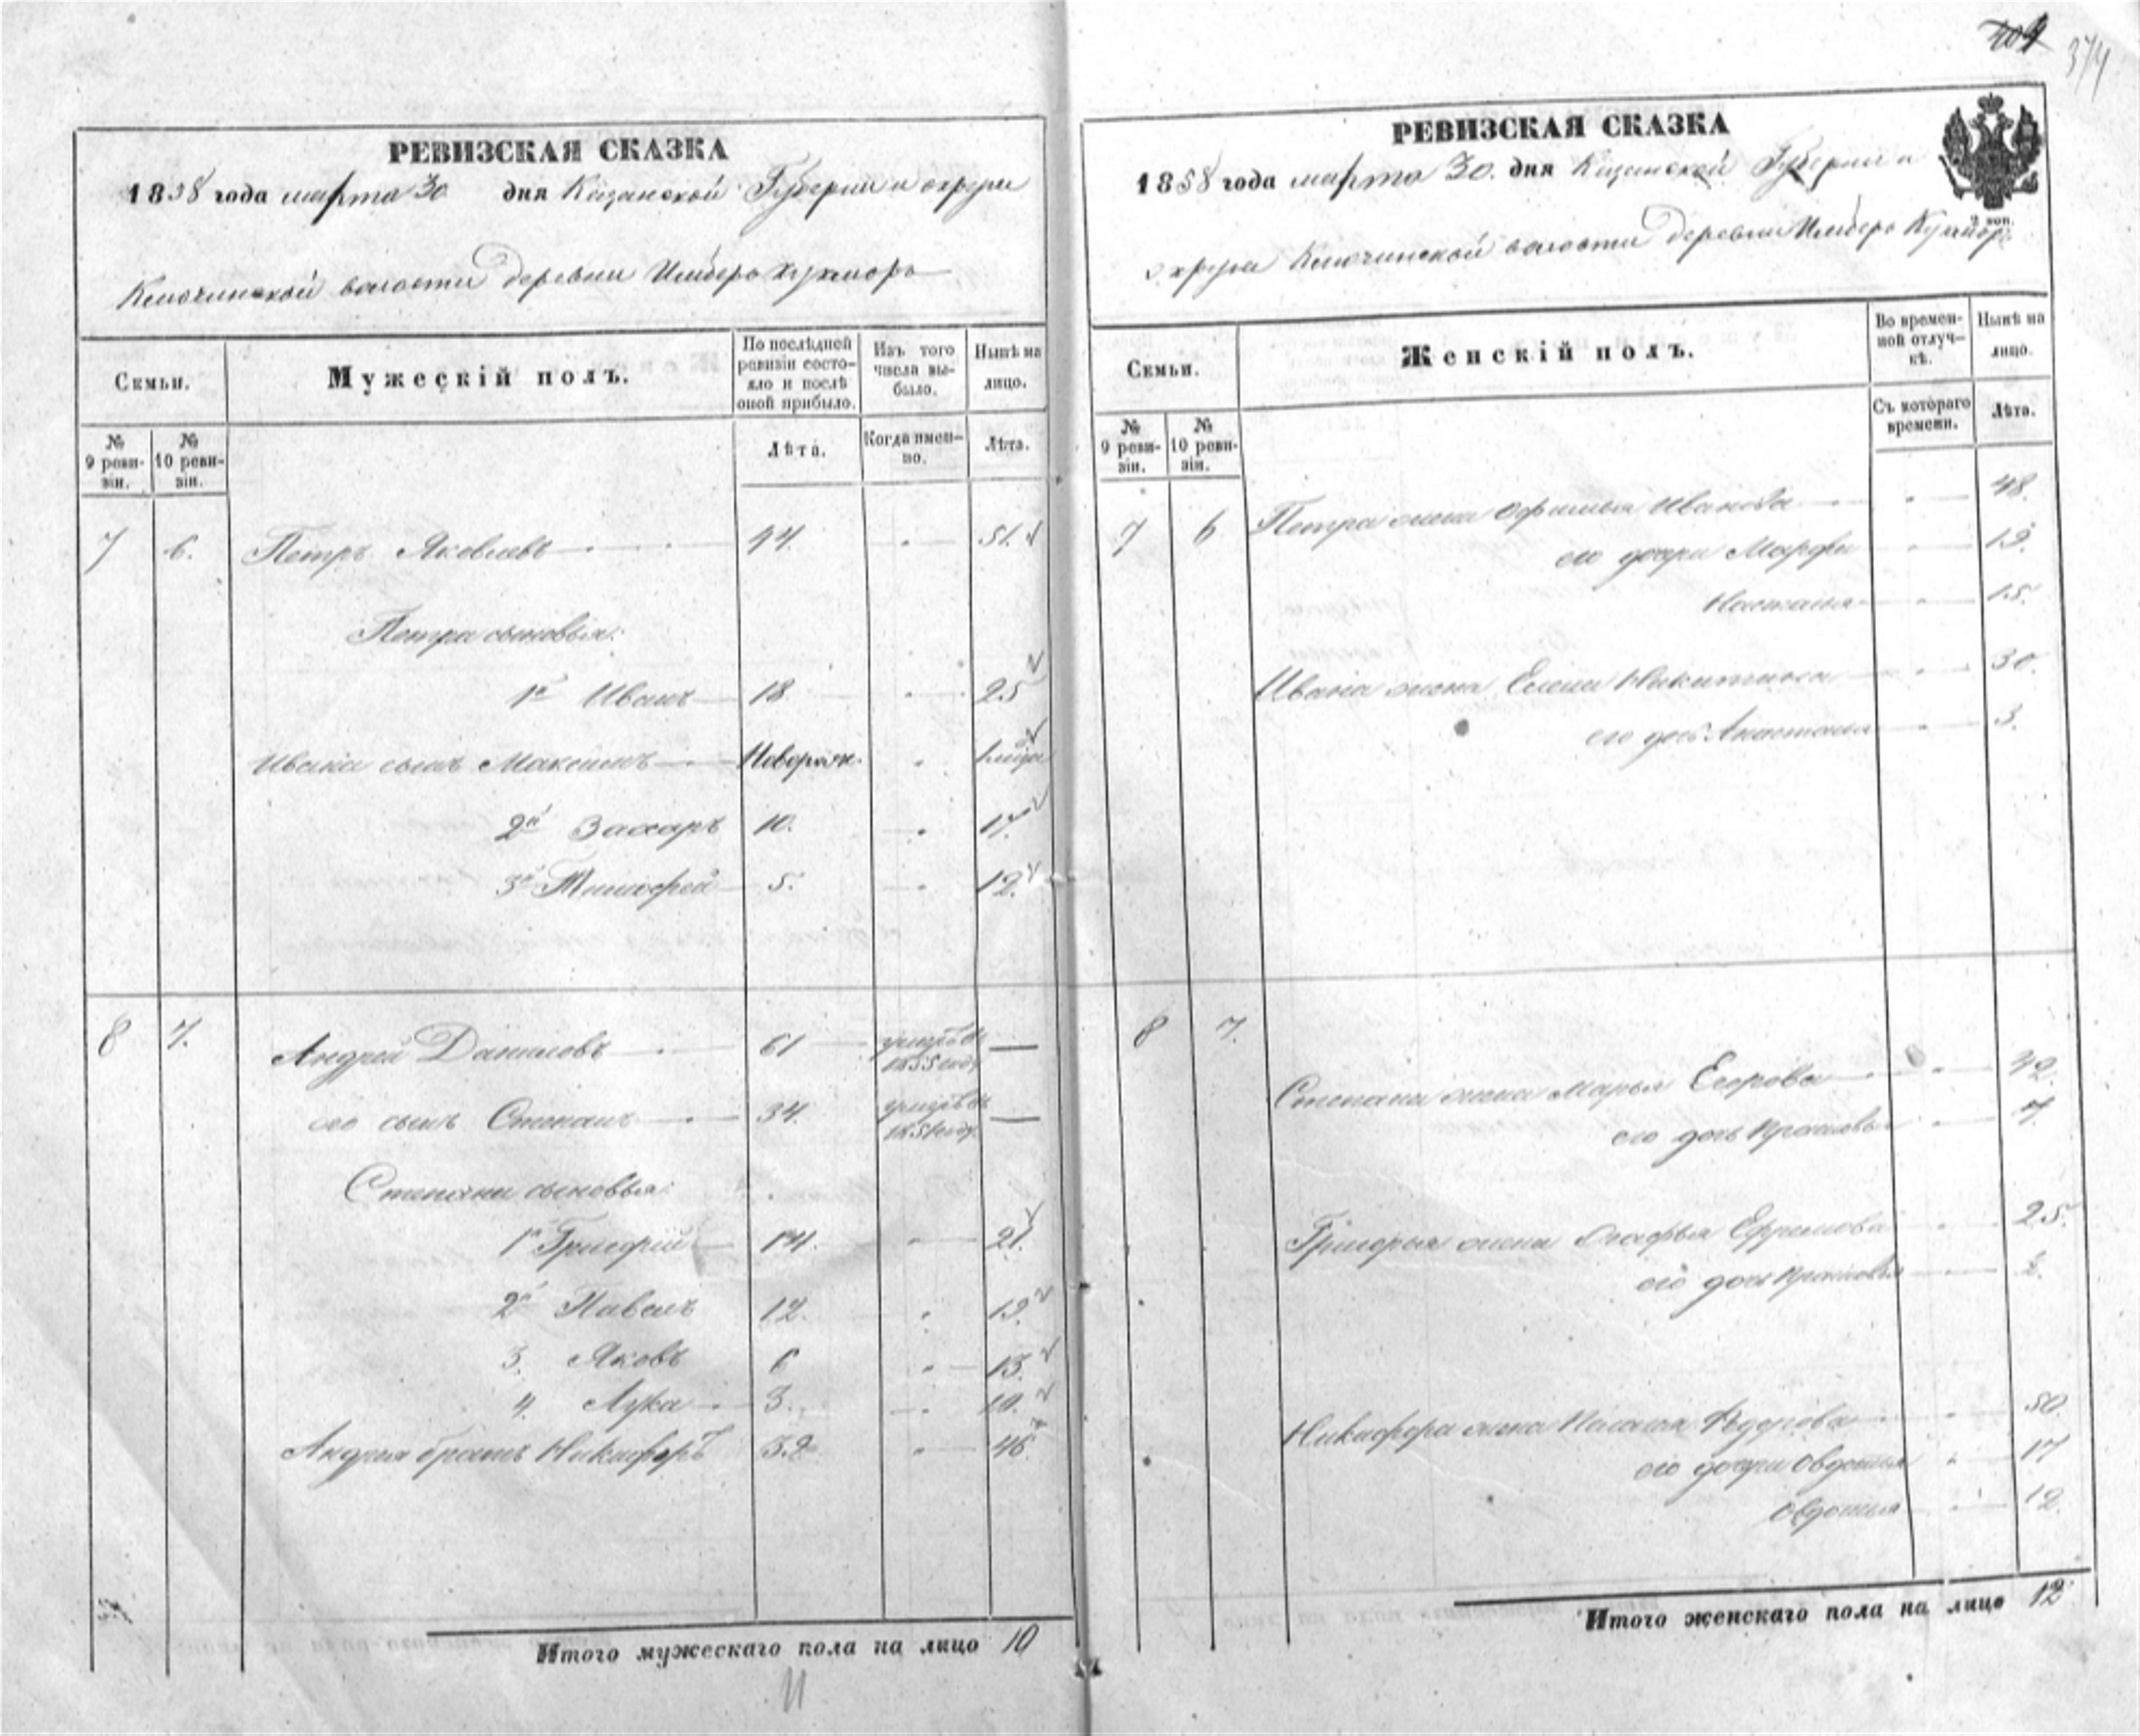 374
РЕВИЗСКАЯ СКАЗКА
1858 года марта 30 дня Казанской Губернии и округи
Ключинской волости деревни
Семьи.
Мужескій полъ.
По послѣдней ревизіи состояло и послѣ оной прибыло.
Изъ того числа выбыло.
Нынѣ на лицо.
№ 9 ревизіи.
№ 10 ревизіи.
Лѣта.
Когда именно.
Лѣта.
7 6. Петръ Яковлевъ 44. 51.
Петра сыновья:
1й Иванъ 18 25
Ивана сынъ Максимъ Новорож.
2й Захаръ 10. 17.
3й Тимофей 5. 12.
8 7. Андрей Даниловъ 61 умеръ въ 1855 году —
его сынъ Степанъ 34. умеръ въ 1851 году. —
Степана сыновья:
1й Григорій 14. 21.
2й Павелъ 12. 19.
3. Яковъ 6 13.
4. Лука 3. 10.
Андрея братъ Никифоръ 46.
Итого мужескаго пола на лицо 10
11
РЕВИЗСКАЯ СКАЗКА
1858 года марта 30. дня Казанской Губерніи и
2 коп.
округи Ключинской волости деревни
Семьи.
Женскій полъ.
Во временной отлучкѣ.
Нынѣ на лицо.
№ 9 ревизіи.
№ 10 ревизіи.
Съ котораго времени.
Лѣта.
7 6 Петра жена Офимья Иванова 48.
его дочри Марфа 19.
Настасья 15.
Ивана жена Елена Никитина 30.
его дочь Анастасья 3.
8 7.
Степана жена Марья Егорова 42.
его дочь Прасковья 7.
Григорья жена Агафья Ефремова 25.
его дочь Прасковья
Никифора жена Пелагея Федорова 50.
его дочри Овдотья 17
Овдотья 12.
Итого женскаго пола на лицо 12